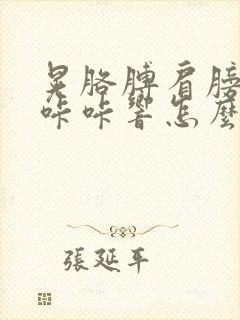 晃胳膊肩膀
咔咔響怎麼
張延平